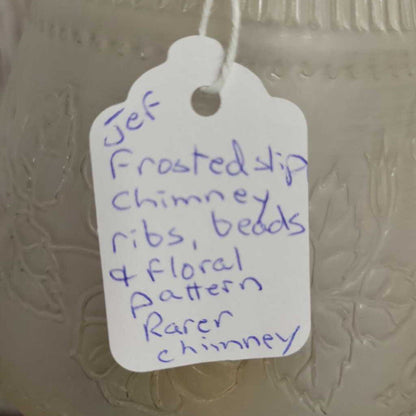 Jef
Frosted slip
chimney
ribs, beads
& floral
pattern
Rarer
chimney